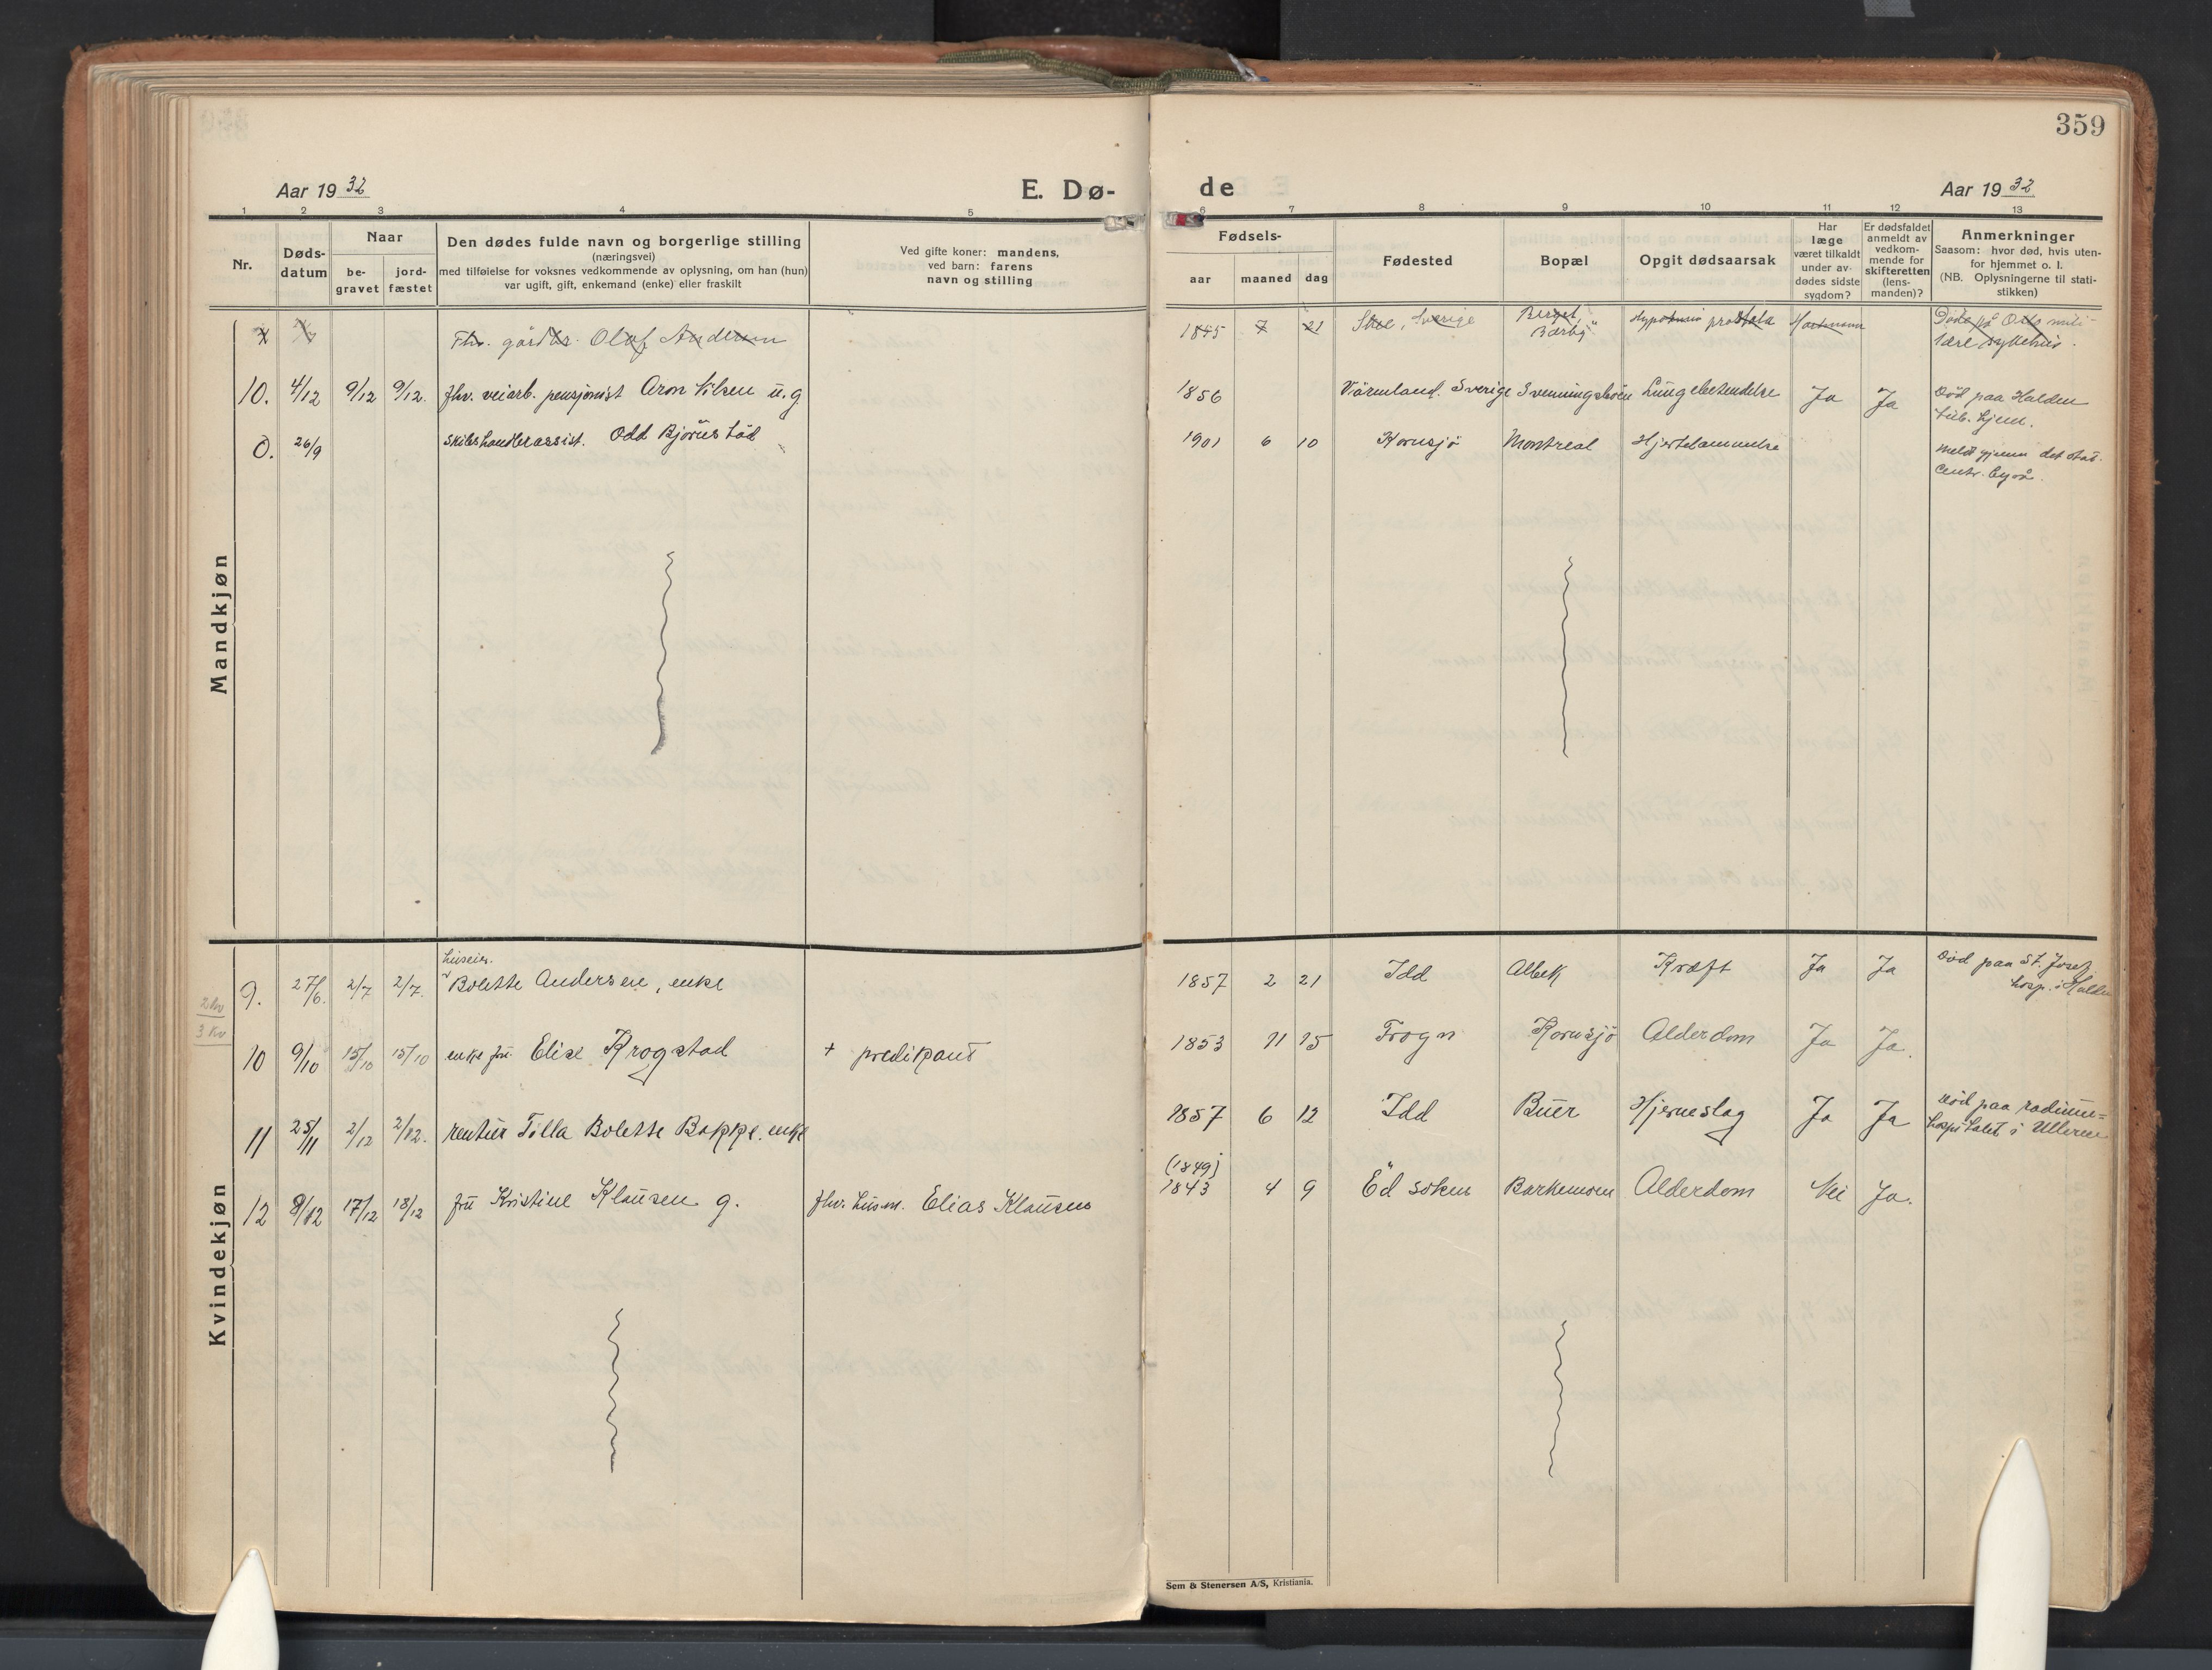 359
Aar 1932
E. Dø-
de
Aar 1932
1 2 3 4 5 6 7 8 9 10 11 12 13
Nr.
Døds-
datum
Naar
be-
gravet
jord-
fæstet
Den dødes fulde navn og borgerlige stilling
(næringsvei)
med tilføielse for voksnes vedkommende av oplysning, om han (hun)
var ugift, gift, enkemand (enke) eller fraskilt
Ved gifte koner: mandens,
ved barn: farens
navn og stilling
Fødsels-
aar maaned dag
Fødested
Bopæl
Opgit dødsaarsak
Har
læge
været tilkaldt
under av-
dødes sidste
sygdom?
Er dødsfaldet
anmeldt av
vedkom-
mende for
skifteretten
(lens-
manden)?
Anmerkninger
Saasom: hvor død, hvis uten-
for hjemmet o. l.
(NB. Oplysningerne til stati-
stikken)
Mandkjøn
Fhv. gårdbr. Olaf Andersen 1845 7 21 Sverige Berget, Hypotrusio prostata
"Bærby" Døde på Oslo mili
tære sykehus.
10. 4/12 9/12 9/12. fhv. veiarb. pensjonist Aron Nilsen u.g 1856 Värmland. Sverige Svenningsbøen Lungebetendelse Ja Ja Død paa Halden
tub. hjem.
0. 26/9 skibshandlerassist. Odd Bjørnstad 1901 6 10 Kornsjø Montreal Hjertelammelse Meldt gjennem det stat.
centr. byrå.
Kvindekjøn
huseier.
9. 27/6. 2/7 2/7. Bolette Andersen, enke 1857 2 21 Idd Albek Kræft Ja Ja Død paa St. Josef
hosp. i Halden
3 Kv
10 9/10 15/10 15/10 enke fru Elise Krogstad + predikant 1853 11 15 Frogn Kornsjø Alderdom Ja Ja.
11 25/11 2/12 2/12. rentier Tilla Bolette Boppe. enke 1857 6 12 Idd Buer Hjerneslag Ja Ja Død paa radium=
hospitalet i Ullern
(1849)
12 8/12 17/12 18/12 fru Kristine Klausen g. fhv. husm. Elias Klausen 1843 4 9 Ed soken Barkemoen Alderdom Nei Ja.
Sem & Stenersen A/S, Kristiania.